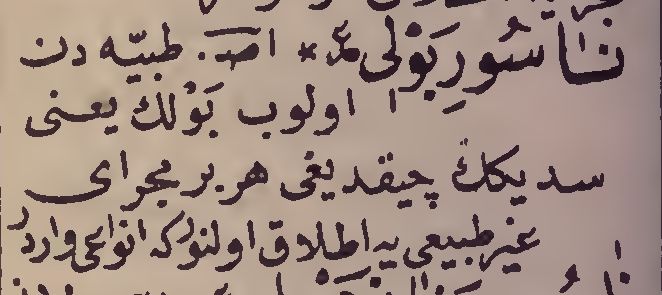 ناسُورِ بَوْلی * اصـ. طبیّه دن
اولوب بَوْلك یعنی
سدیكڭ چیقدیغی هر بر مجرای
غیر طبیعی یه اطلاق اولنور كه انواعی واردر